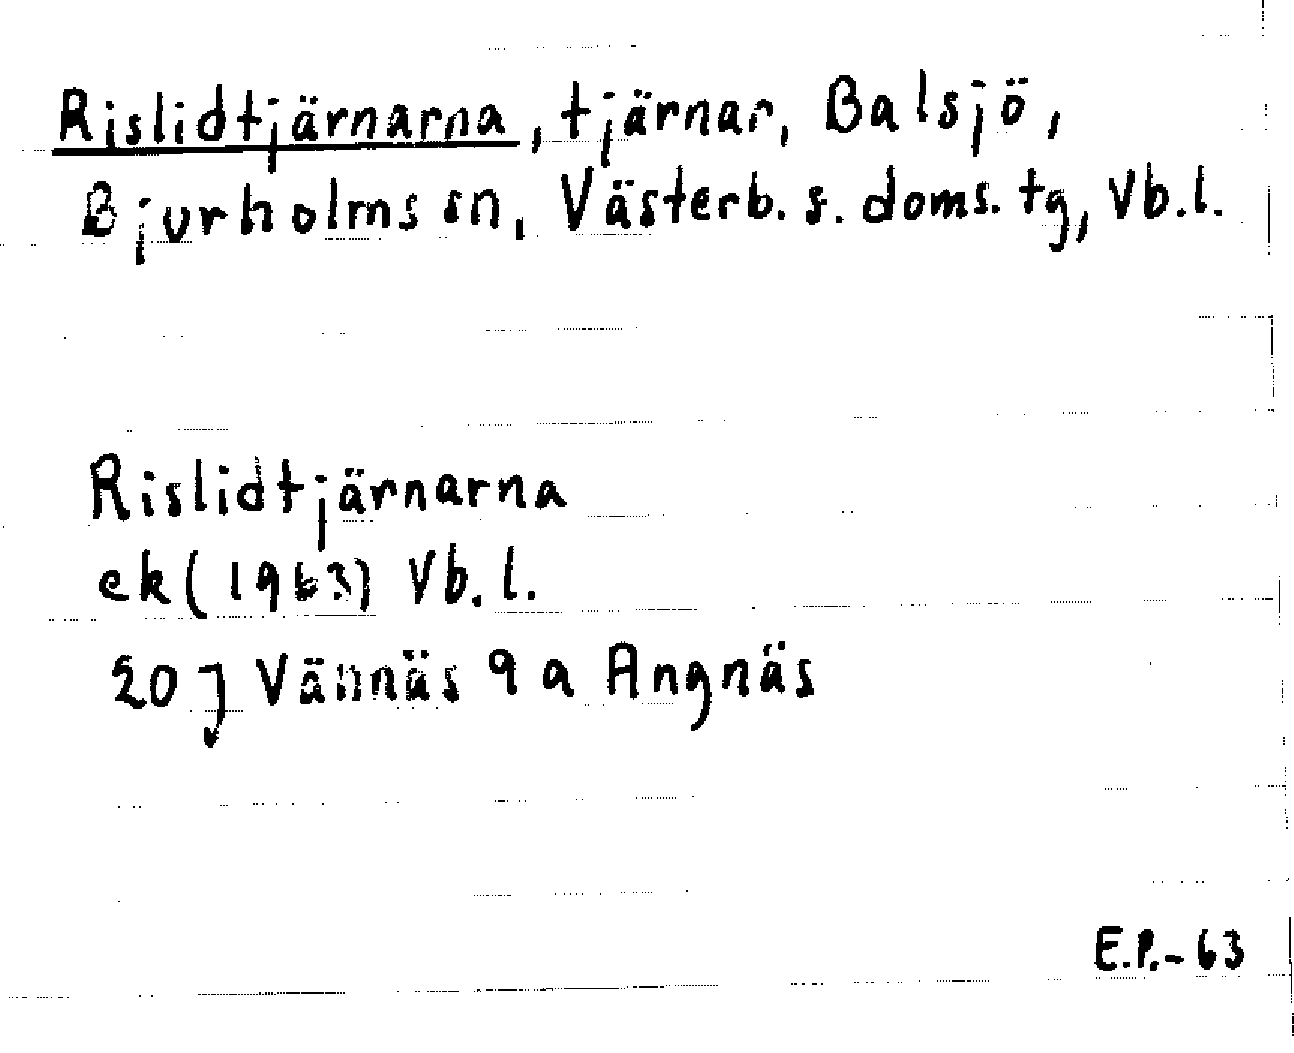 Rislidtjärnarna, tjärnar, Balsjö,
Bjurholms sn, Västerb. s. doms. tg, Vb.l.
Rislidtjärnarna
ek (1963) Vb.l.
20 J Vännäs 9 a Angnäs
E.P.-63